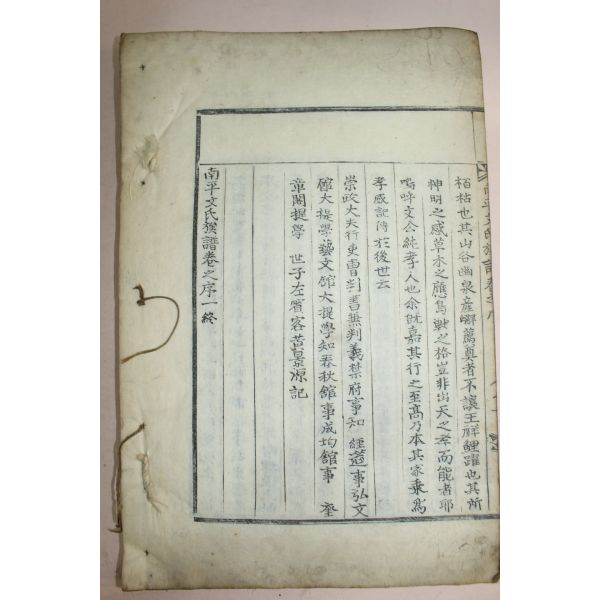 栢枯也其山谷幽泉産鱗薦奠者不讓王祥鯉躍也其所
神明之感草木之應鳥獸之格豈非出天之孝而能者耶
嗚呼文公純孝人也余旣嘉其行之至高乃本其家乘爲
孝感記傳於後世云
崇政大夫行吏曹判書兼判義禁府事知 經筵事弘文
館大提學藝文館大提學知春秋館事成均館事 奎
章閣提學 世子左賓客黃景源記
南平文氏族譜卷之序一終
南平文氏族譜卷之